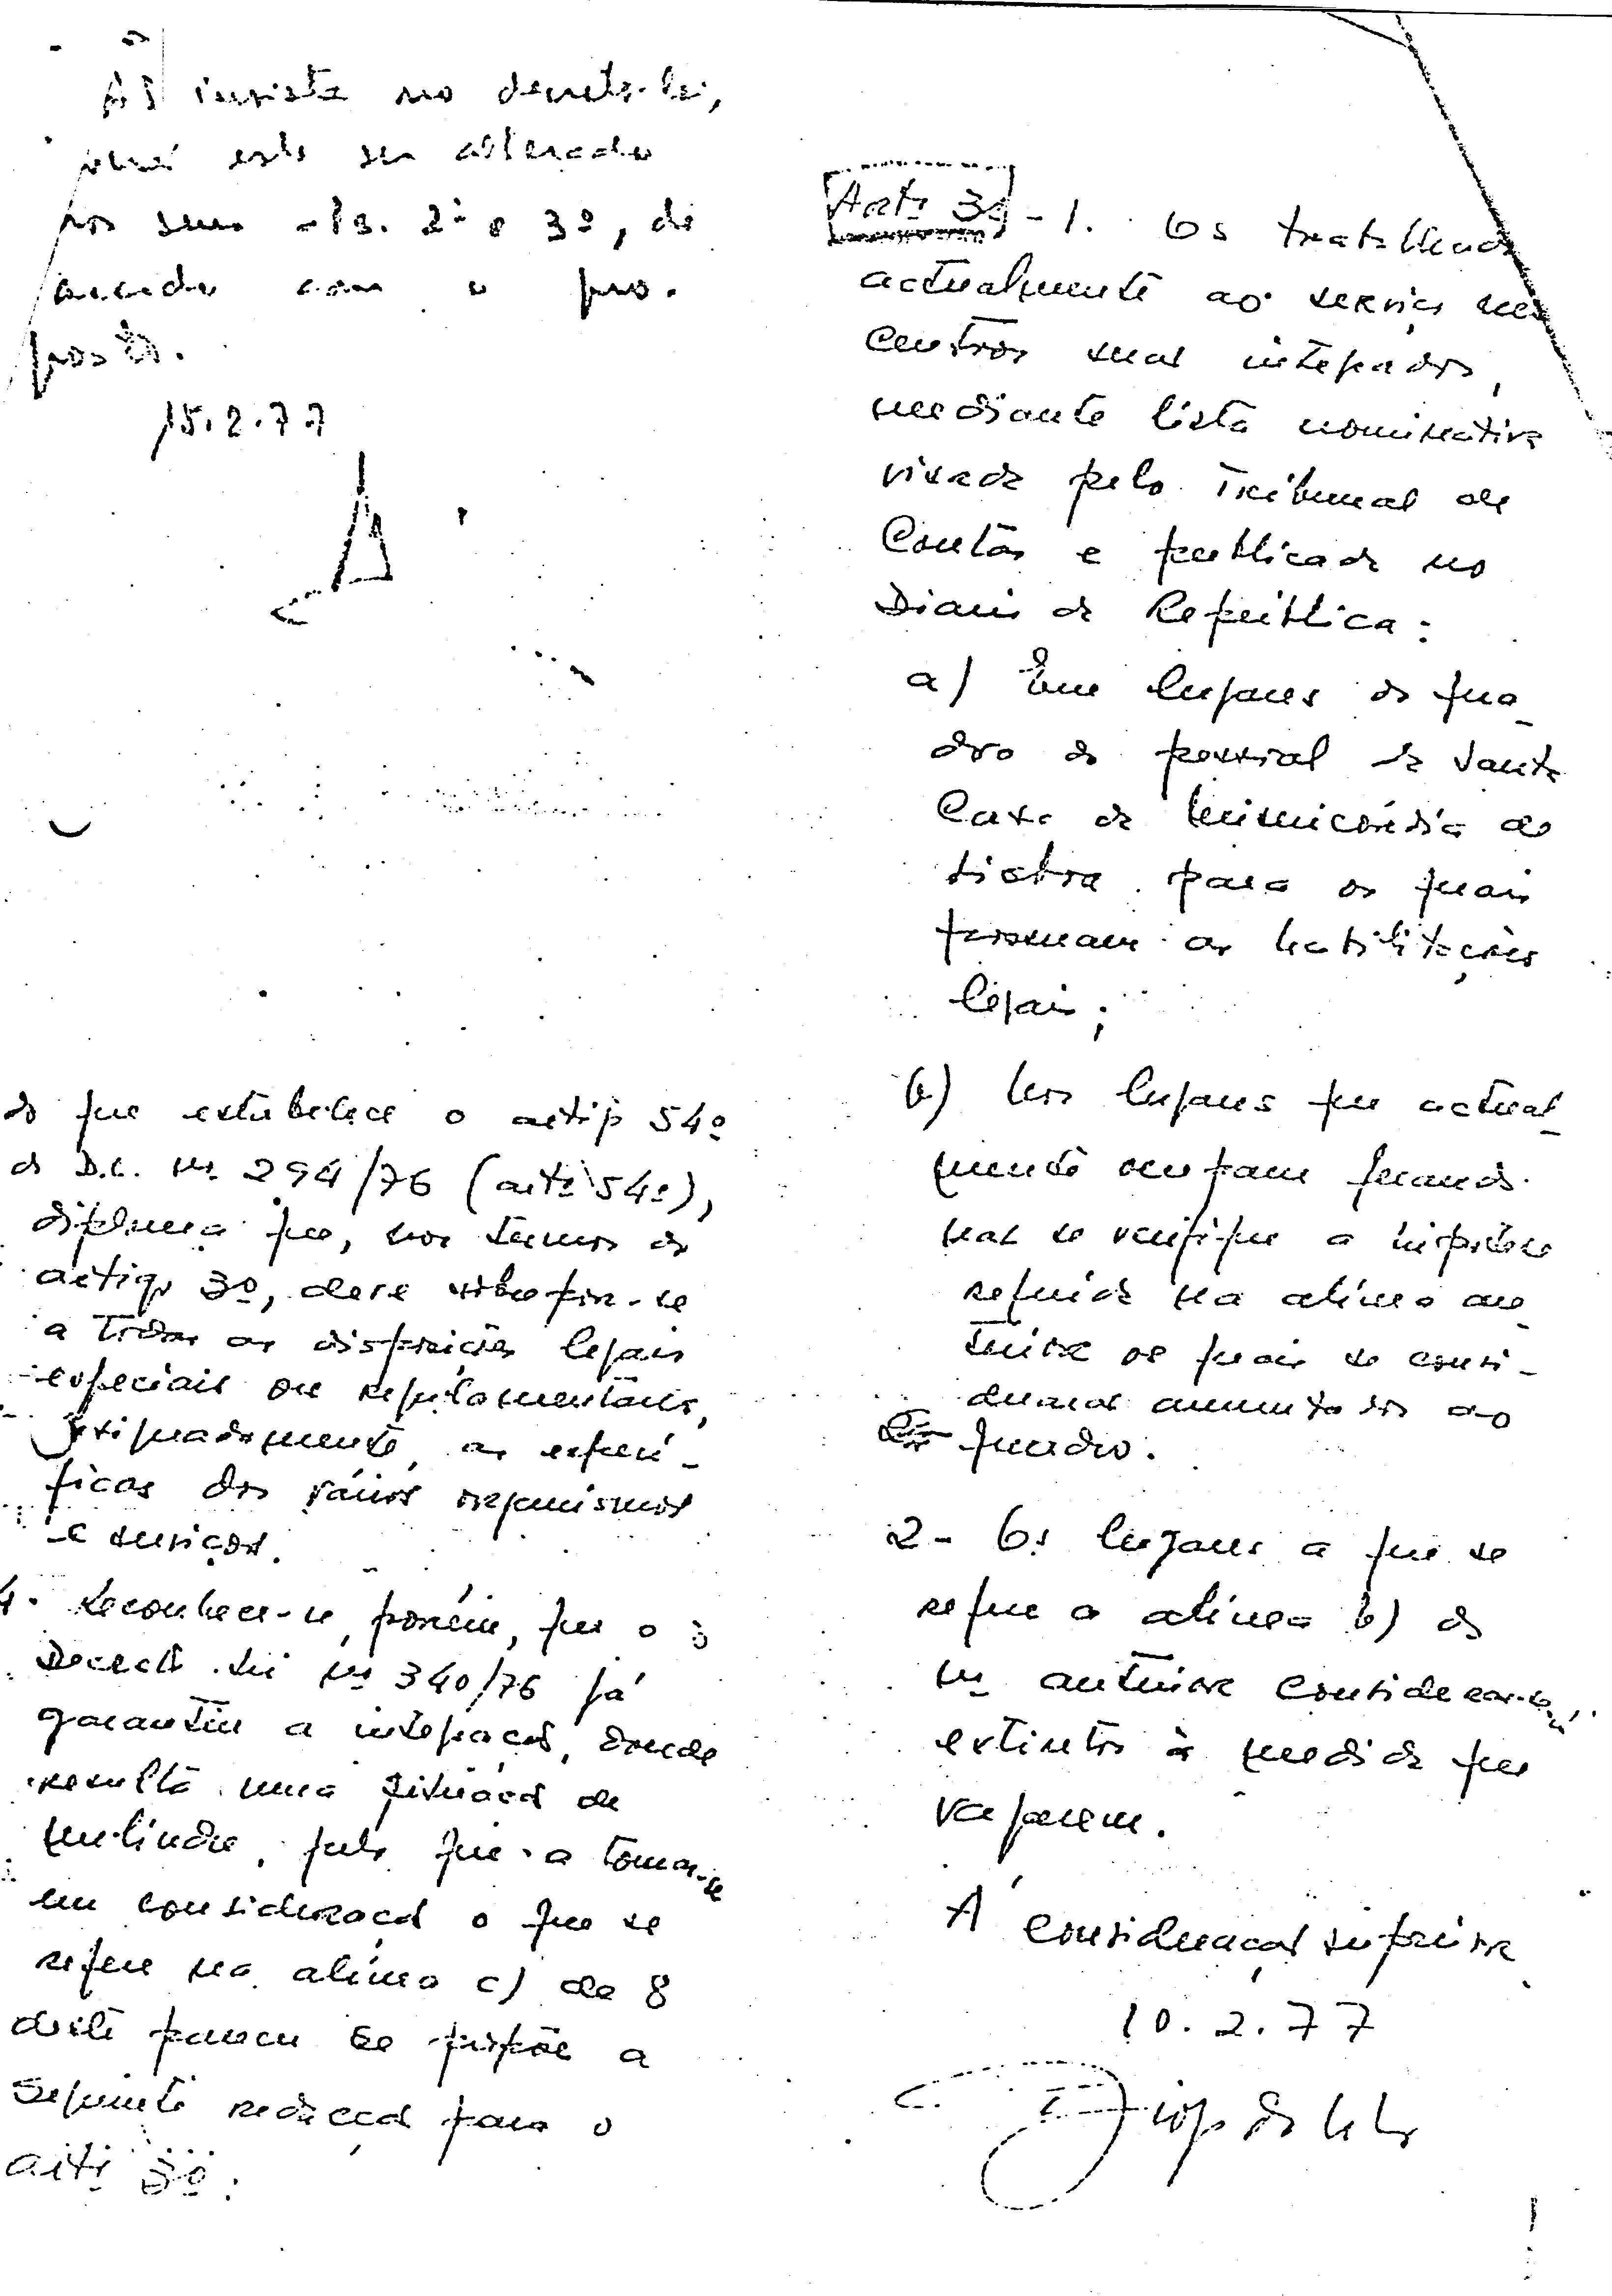 insista no decreto-lei,
este ser alterado
nos seus 2º e 3º, de
acordo com o pro-
posto.
15.2.77
do que estabelece o artigo 54º
do D.L. nº 294/76 (artº 54º),
diploma que, nos termos do
artigo 3º, deve sobrepor-se
a todas as disposições legais
especiais ou regulamentares,
designadamente, as especí-
ficas dos vários organismos
e serviços.
4. Reconhece-se, porém, que o
Decreto-Lei nº 340/76 já
garantiu a integração, donde
resulta uma situação de
melindre, pelo que a tomar-se
em consideração o que se
refere na alínea c) de 8
deste parecer se propõe a
seguinte redacção para o
artº 3º:
Artº 3º - 1. Os
actualmente ao serviço nos
centros serão integrados,
mediante lista nominativa
visada pelo Tribunal de
Contas e publicada no
Diário da República:
a) Em lugares do qua-
dro do pessoal da Santa
Casa da Misericórdia de
Lisboa para os quais
possuam as habilitações
legais;
b) Nos lugares que actual-
mente ocupam quando
não se verifique a hipótese
referida na alínea an-
terior os quais se consi-
deram aumentados ao
quadro.
2 - Os lugares a que se
refere a alínea b) do
nº anterior consideram-se
extintos à medida que
vagarem.
À consideração superior
10.2.77